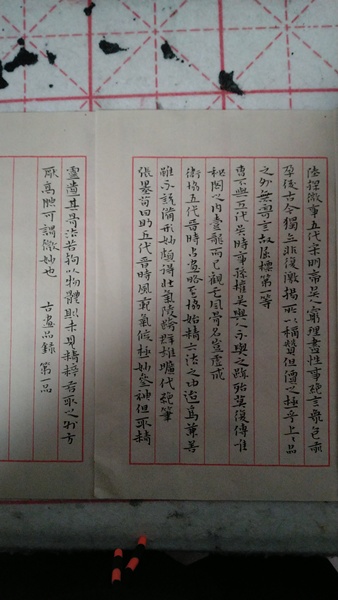 陸探微事五代宋明帝吳人窮理盡性事絕言象包前
孕後古今獨立非復激揚所以稱贊但價之極乎上〻品
之外無寄言故屈標第一等
曹不興五代吳時事孫權吳興人不興之跡殆莫復傳唯
秘閣之內壹龍而已觀其風骨名豈虛成
衛協五代晉時古畫略至協始精六法之中迨為兼善
雖不說備形妙頗得壯氣陵跨群雄曠代絕筆
張墨荀勗五代晉時風範氣候極妙參神但取精
靈遺其骨法若拘以物體則未見精粹若取之外方
厭高腴可謂微妙也 古畫品錄 第一品